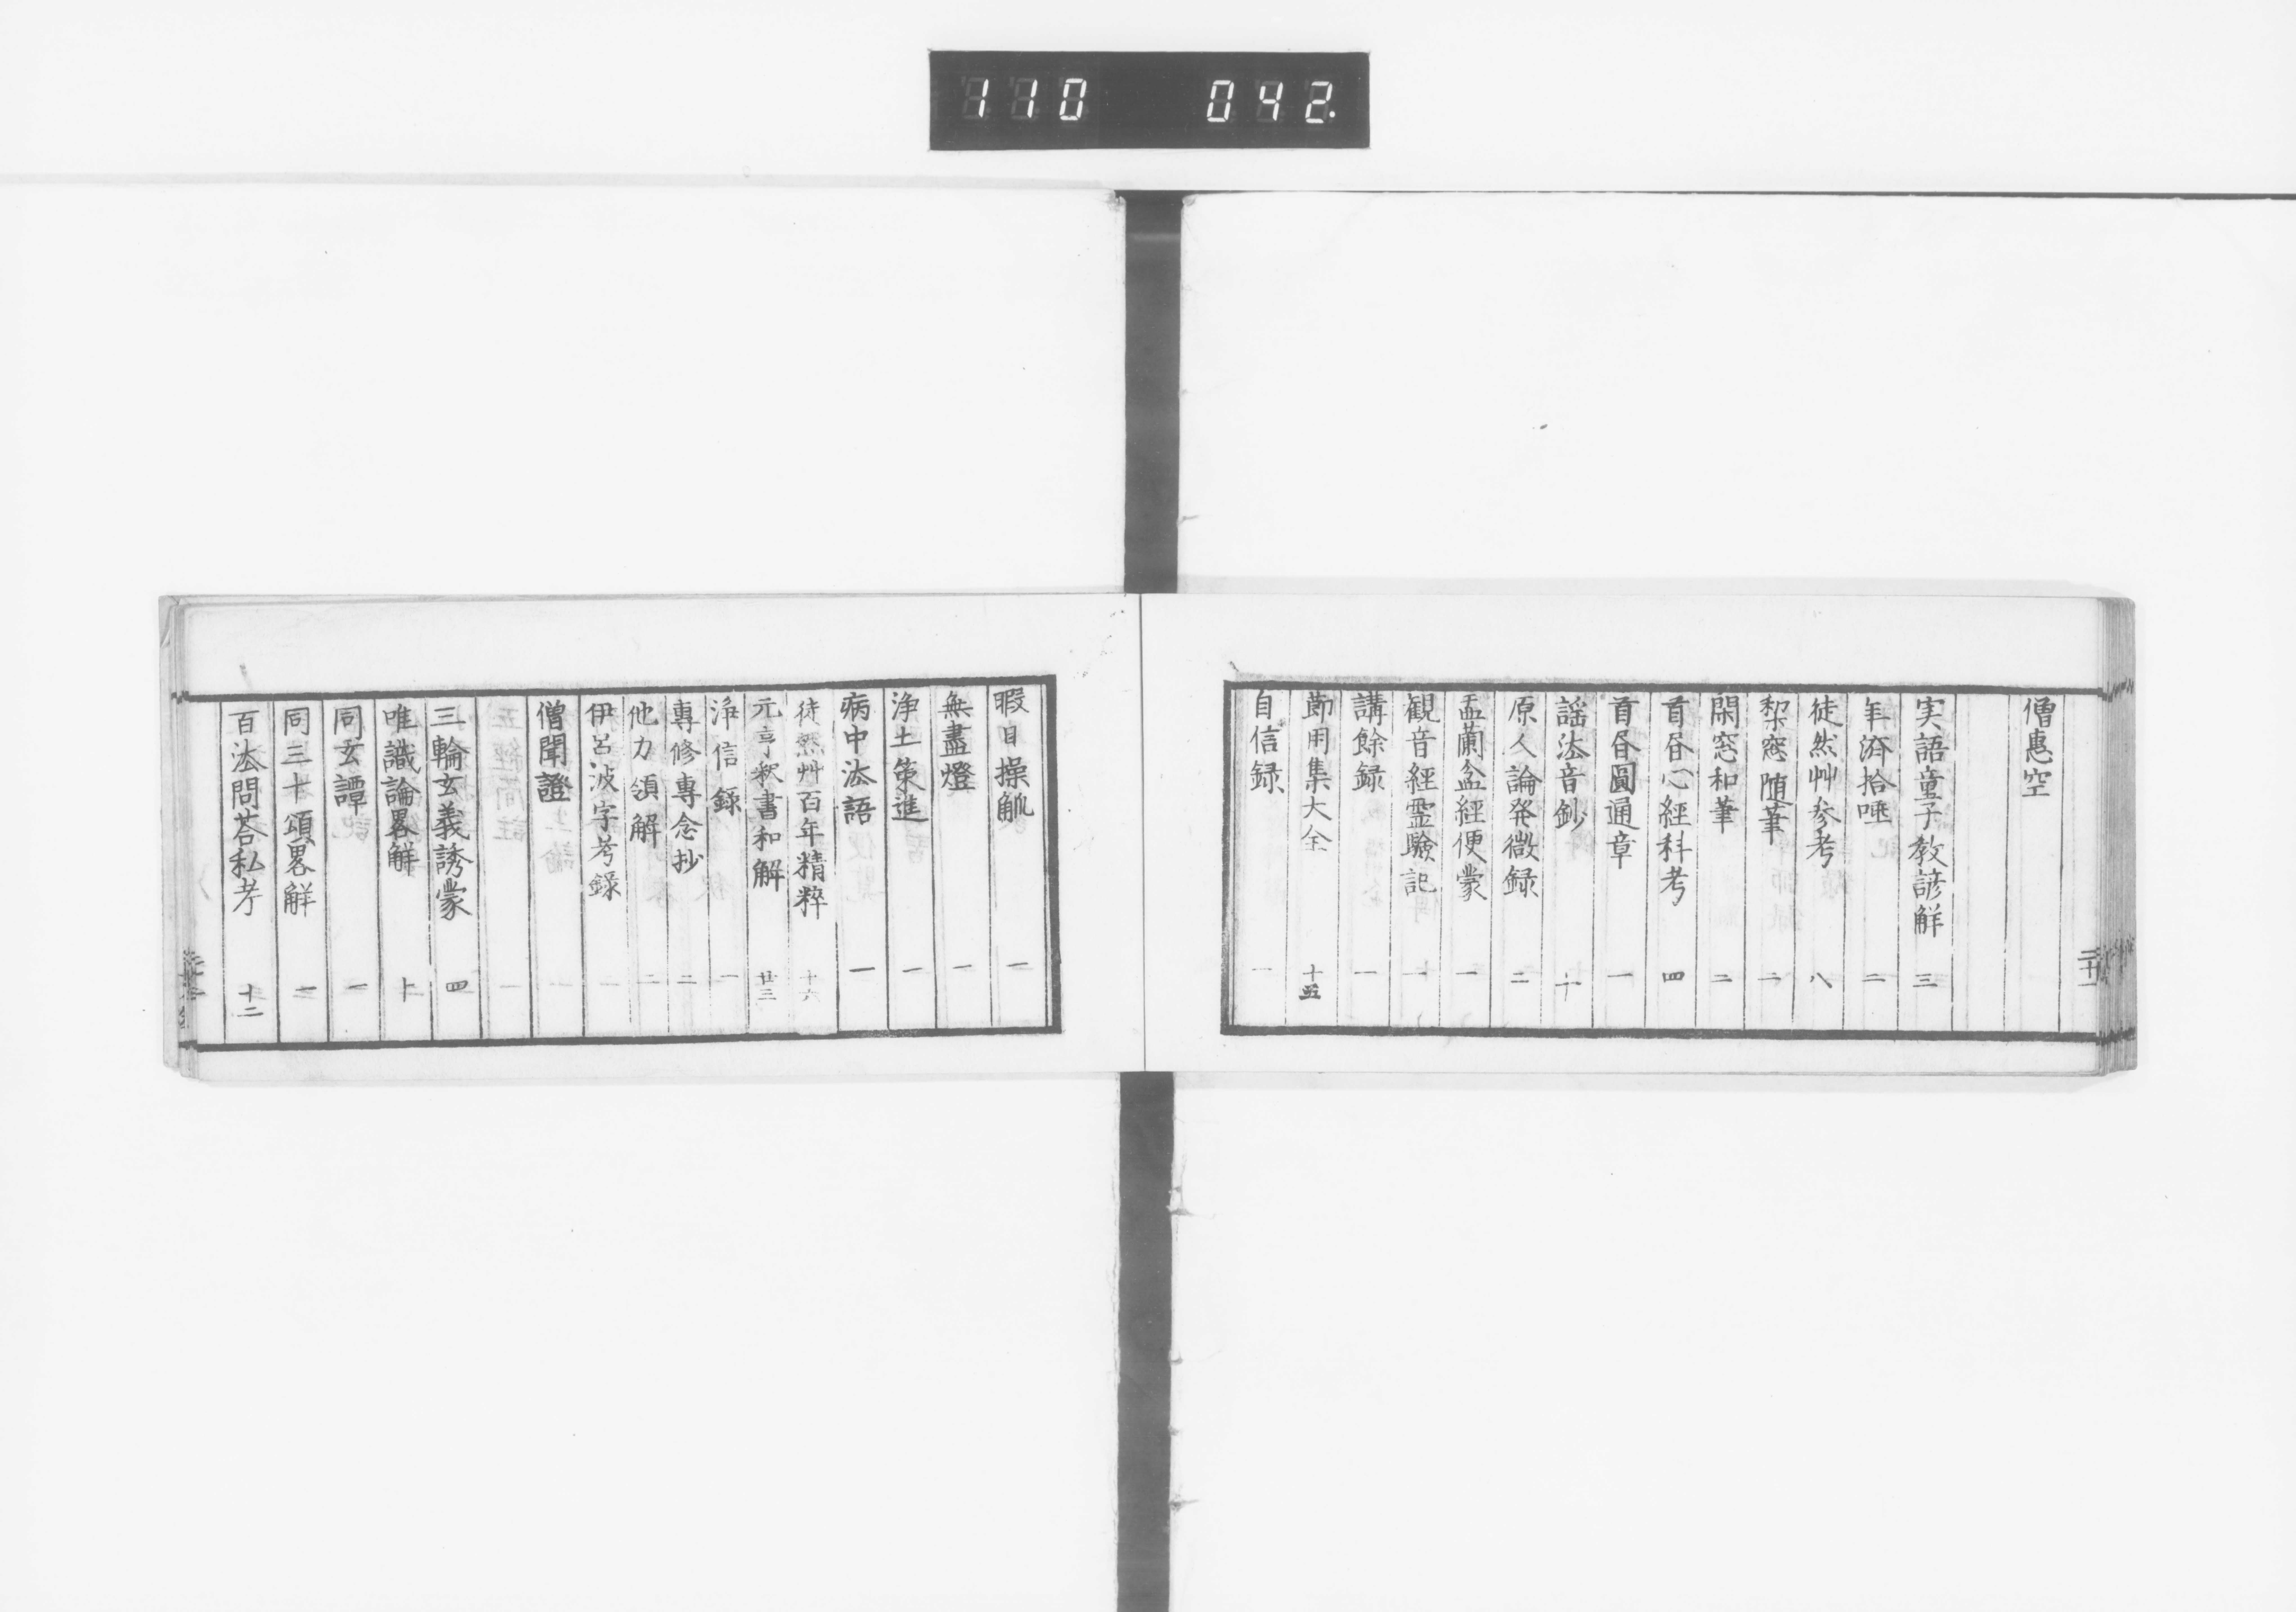 110 042.
僧惠空
実語童子教諺解 三
年済拾唾 二
徒然艸参考 八
梨窓随筆 二
閑窓和筆 二
首㫪心經科考 四
首㫪圓通章 一
謡法音鈔 十
原人論発微録 二
盂蘭盆經便蒙 一
観音經霊驗記 一
講餘録 一
節用集大全 十五
自信録 一
暇日操觚 一
無盡燈 一
浄土策進 一
病中法語 一
徒然艸百年精粹 十六
元亨釈書和解 廿三
浄信録 一
專修專念抄 二
他力領解 二
伊呂波字考録 一
僧聞證
三輪玄義誘蒙 四
唯識論畧解 十
同玄譚 一
同三十頌畧解 一
百法問荅私考 十二